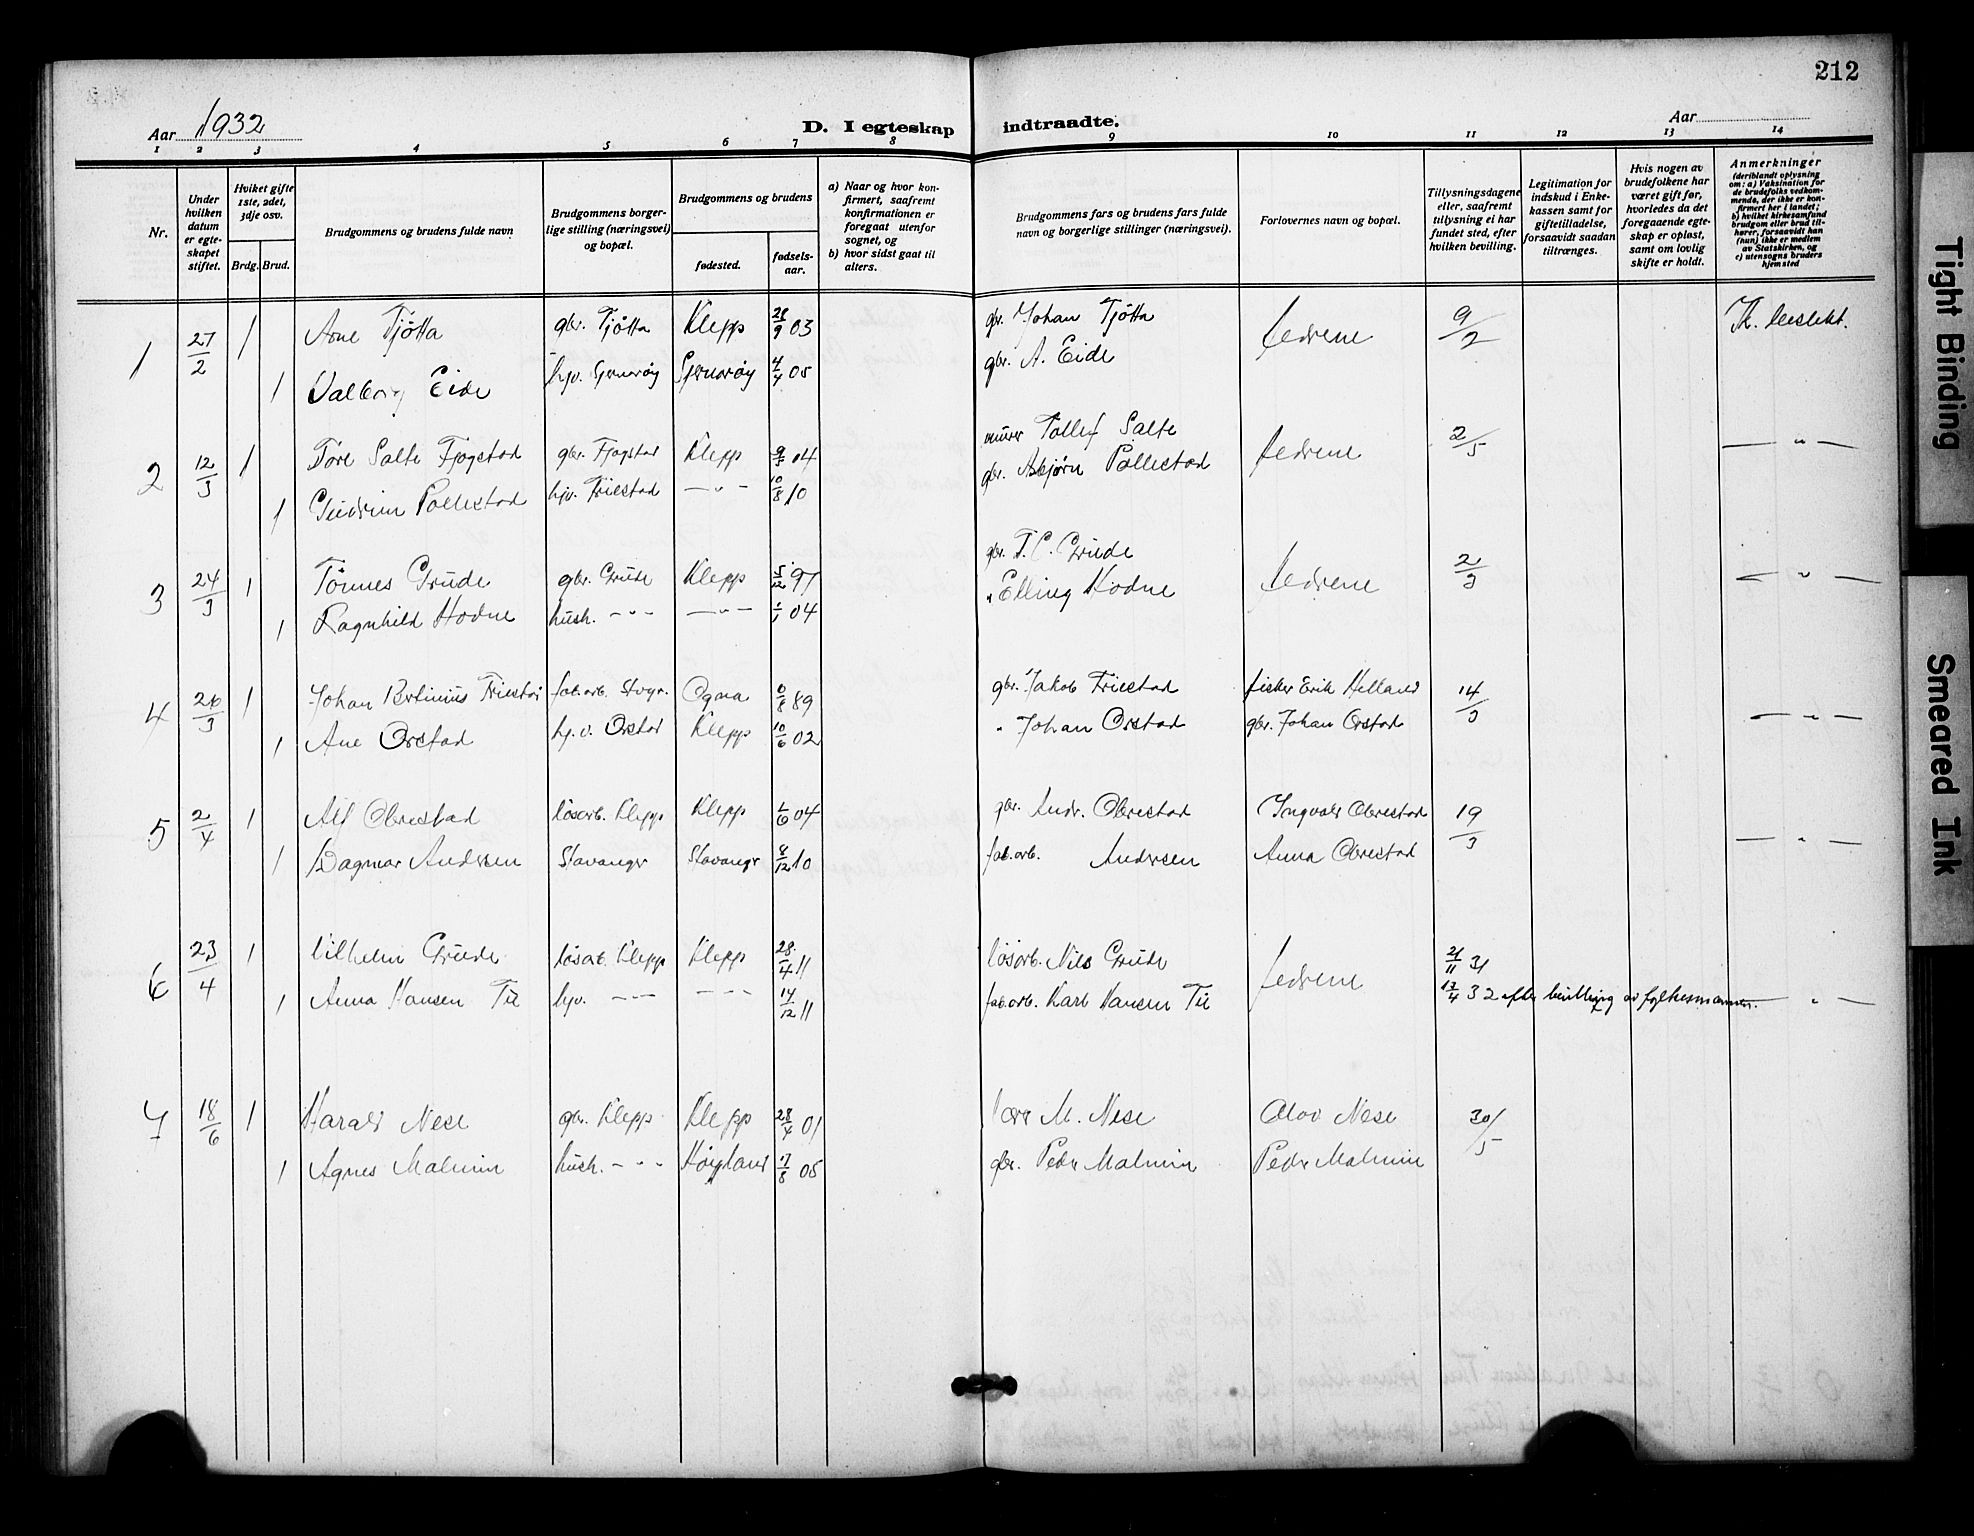 212
Aar 1932
D. I egteskap indtraadte.
Aar
1 2 3 4 5 6 7 8 9 10 11 12 13 14
Nr.
Under hvilken datum er egteskapet stiftet.
Hviket gifte 1ste, 2det, 3dje osv.
Brdg. Brud.
Brudgommens og brudens fulde navn
Brudgommens borgerlige stilling (næringsvei) og bopæl.
Brudgommens og brudens
fødested.
fødselsaar.
a) Naar og hvor konfirmert, saafremt konfirmationen er foregaat utenfor sognet, og
b) hvor sidst gaat til alters.
Brudgommens fars og brudens fars fulde navn og borgerlige stillinger (næringsvei).
Forlovernes navn og bopæl.
Tillysningsdagene eller, saafremt tillysning ei har fundet sted, efter hvilken bevilling.
Legitimation for indskud i Enkekassen samt for giftetilladelse, forsaavidt saadan tiltrænges.
Hvis nogen av brudefolkene har været gift før, hvorledes da det foregaaende egteskap er opløst, samt om lovlig skifte er holdt.
Anmerkninger
(deriblandt oplysning om: a) Vaksination for de brudefolks vedkommende, der ikke er konfirmert her i landet; b) hvilket kirkesamfund brudgom eller brud tilhører, forsaavidt han (hun) ikke er medlem av Statskirken, og c) utensogns bruders hjemsted
1 27/2 1 Arne Tjøtta gbr. Tjøtta Klepp 9 03 gbr. Johan Tjøtta fedrene 9/2
1 Valborg Eide hjv. Sjernarøy Sjernarøy 4/4 05 gbr. A. Eide
2 12/3 1 Tore Salte Fjogstad gbr. Fjogstad Klepp 04 murer Tollef Salte fedrene 2/5 — " —
1 Gudrun Pollestad hjv. Friestad — " — 10/8 10 gbr. Asbjørn Pollestad
3 24/3 1 Tønnes Grude gbr. Grude Klepp 5/12 97 gbr. T. C. Grude fedrene 2/3 — " —
1 Ragnhild Hodne hush. — " — — " — 04 " Elling Hodne
4 26/3 1 Johan Bertinius Friestad fab.arb. Stvgr. Ogna 6/8 89 gbr. Jakob Friestad fisker Erik Helland 14/3 — " —
1 Ane Orstad hj.v. Orstad Klepp 10/6 02 " Johan Orstad gbr. Johan Orstad
5 2/4 1 Alf Obrestad løsarb. Klepp Klepp 04 gbr. Andr. Obrestad Ingvald Obrestad 19/3 — " —
1 Dagmar Andersen Stavanger Stavanger 8/12 10 fab.arb. Andersen Anna Obrestad
6 23/4 1 Vilhelm Grude løsarb. Klepp Klepp 28/4 11 løsarb. Nils Grude fedrene 21/11 31
1 Anna Hansen Tu hjv. — " — — " — 14/12 11 fab.arb. Karl Hansen Tu 17/4 32 efter bevilling av fylkesmannen. — " —
7 18/6 1 Harald Nese gbr. Klepp Klepp 28/4 01 M. Nese Olav Nese 30/5
1 Agnes Malmin hush. — " — Høyland 7/8 05 gbr. Peder Malmin Peder Malmin
Tight Binding
Smeared Ink